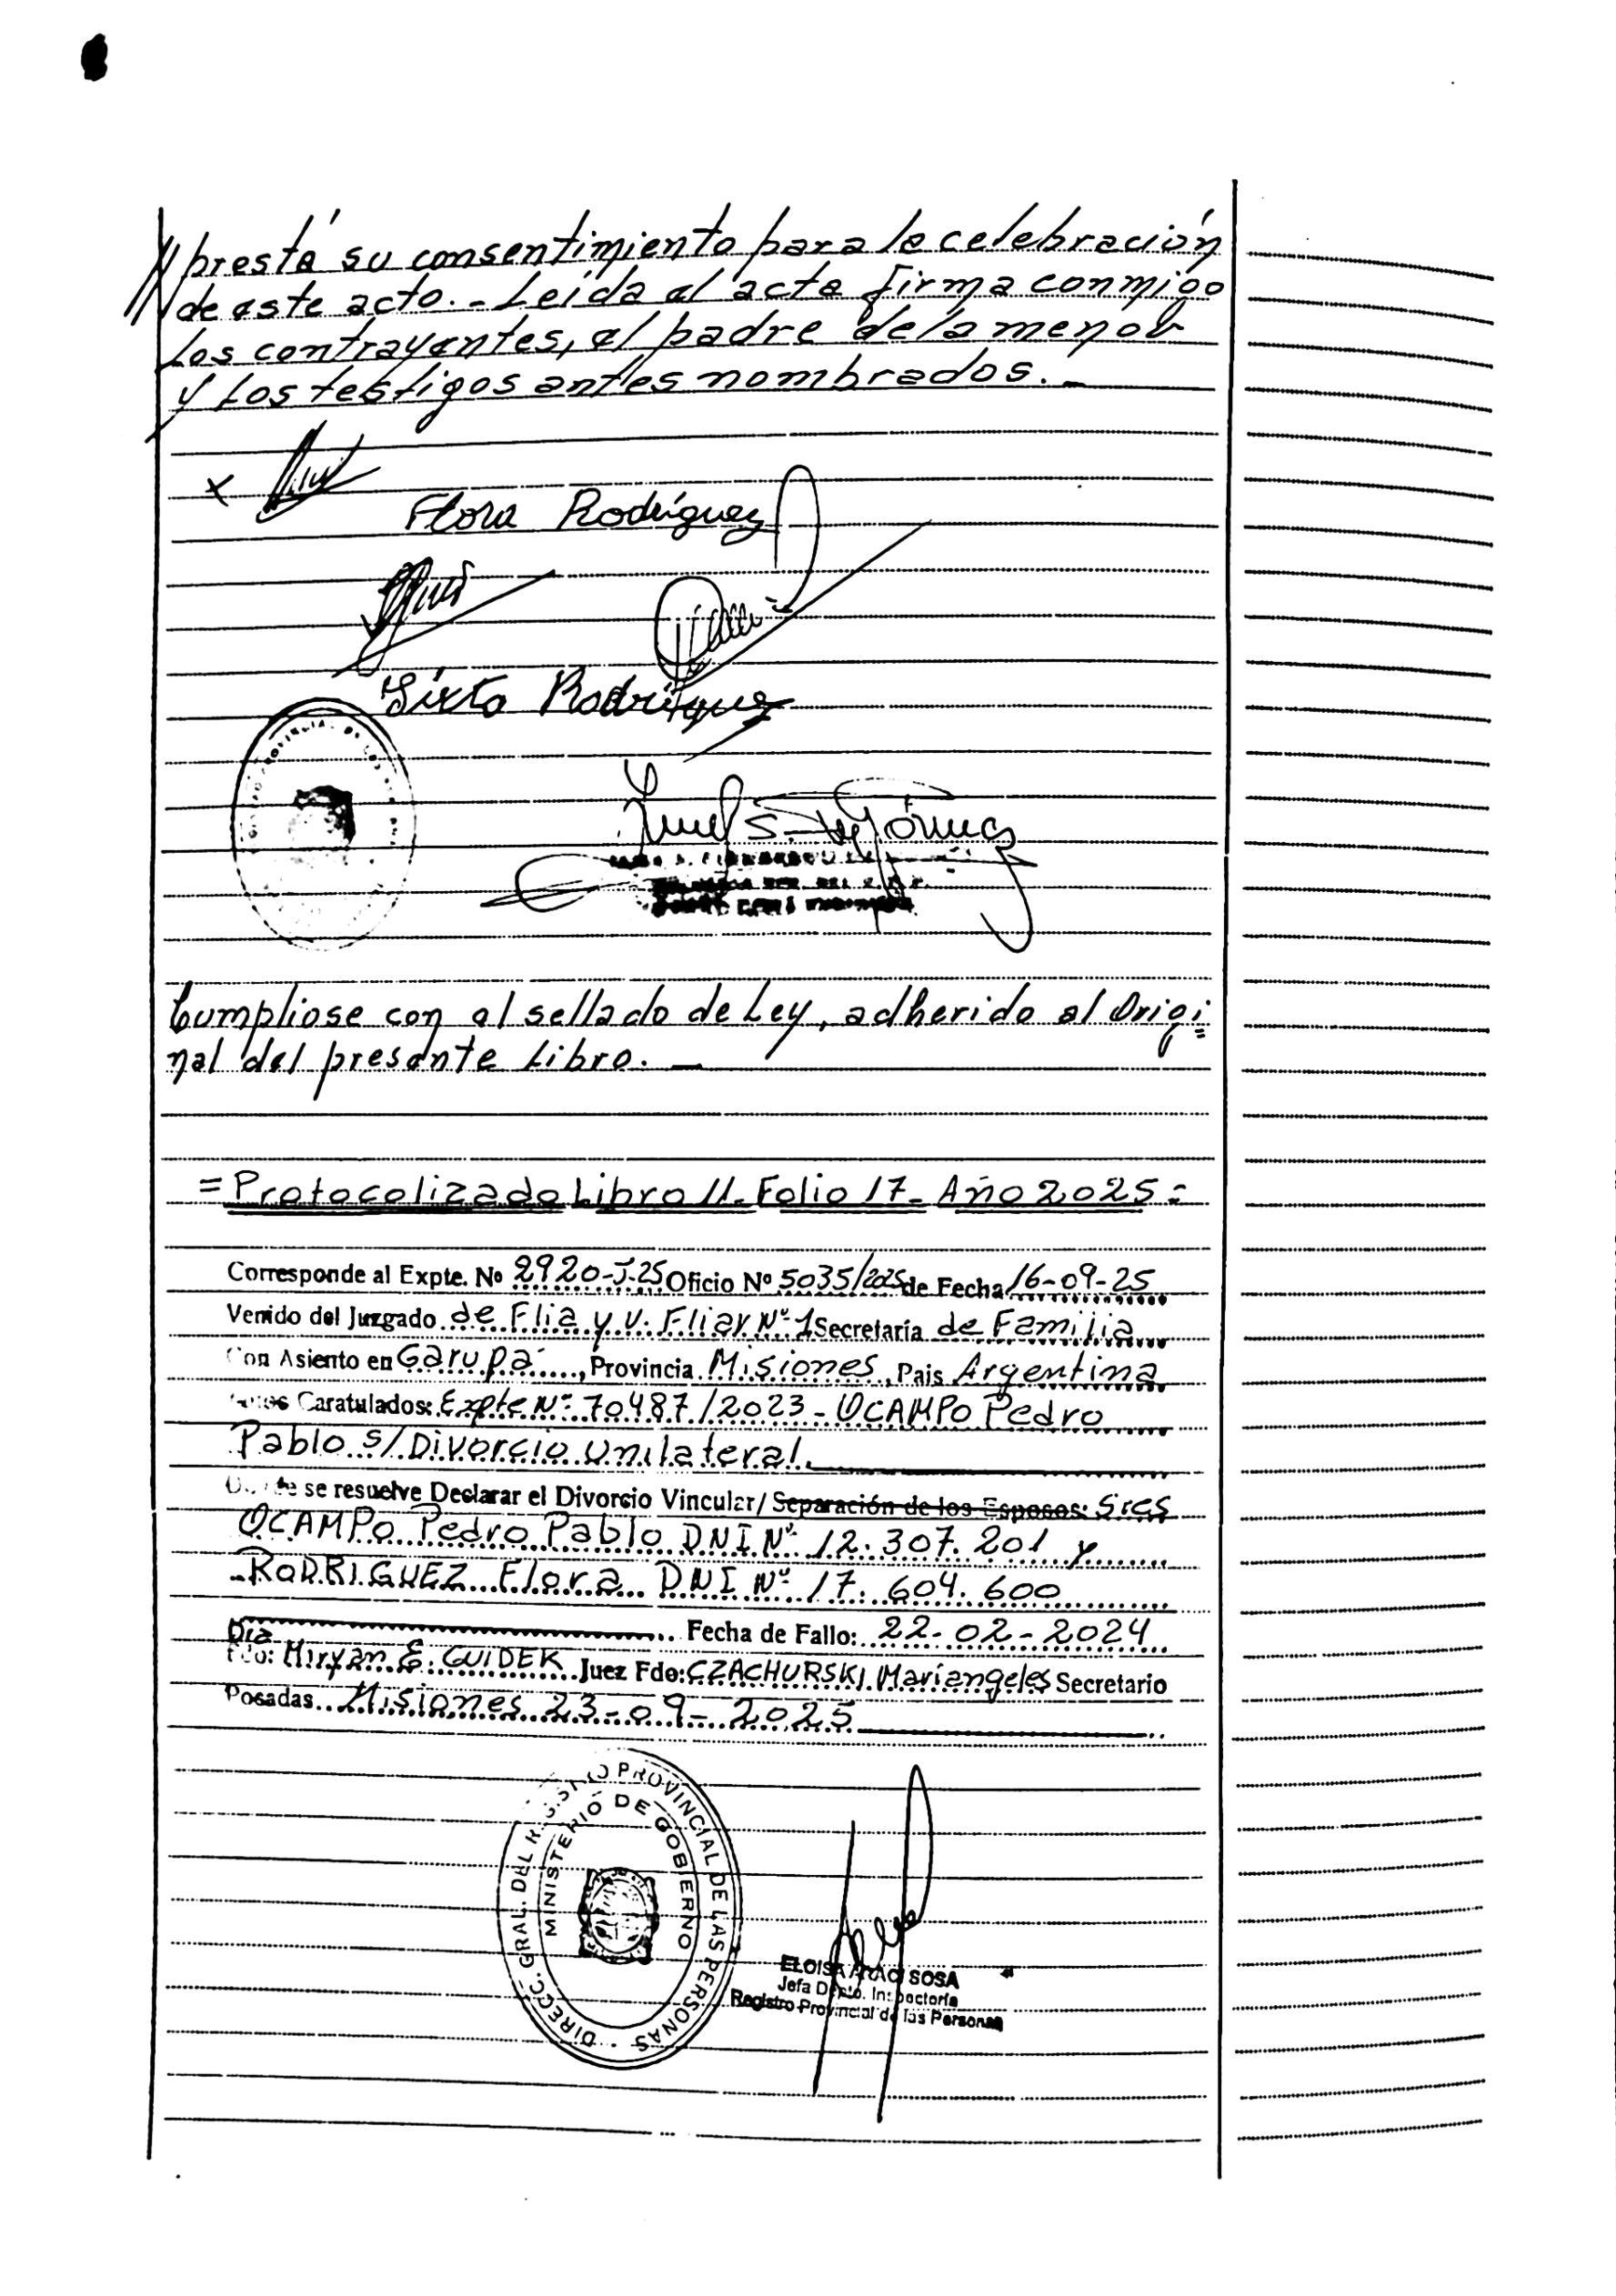 presta su consentimiento para la celebración
de este acto._ Leída el acta firma conmigo
los contrayentes, el padre de la menor
y los testigos antes nombrados._
x
Flora Rodríguez
Sixto Rodríguez
Cumpliose con el sellado de Ley, adherido al Origi=
nal del presente Libro._
=Protocolizado Libro 11_ Folio 17_ Año 2025=
Corresponde al Expte. Nº 2920-J-25 Oficio Nº 5035/2025 de Fecha 16-09-25
Venido del Juzgado de Flia y V. Fliar Nº 1 Secretaría de Familia
Con Asiento en Garupá, Provincia Misiones, Pais Argentina
Caratulados: Expte Nº 70487/2023-OCAMPO Pedro
Pablo s/Divorcio Unilateral.
se resuelve Declarar el Divorcio Vincular/ Separación de los Esposos: Sres
OCAMPO Pedro Pablo DNI Nº 12.307.201 y
RODRIGUEZ Flora DNI Nº 17.604.600
Día Fecha de Fallo: 22-02-2024
Fdo: Miryan E. GUIDEK Juez Fdo: CZACHURSKI Mariangeles Secretario
Posadas Misiones 23-09-2025
DIRECC. GRAL. DEL REGISTRO PROVINCIAL DE LAS PERSONAS
MINISTERIO DE GOBIERNO
ELOISA ARACI SOSA
Jefa Depto. Inspectoría
Registro Provincial de las Personas